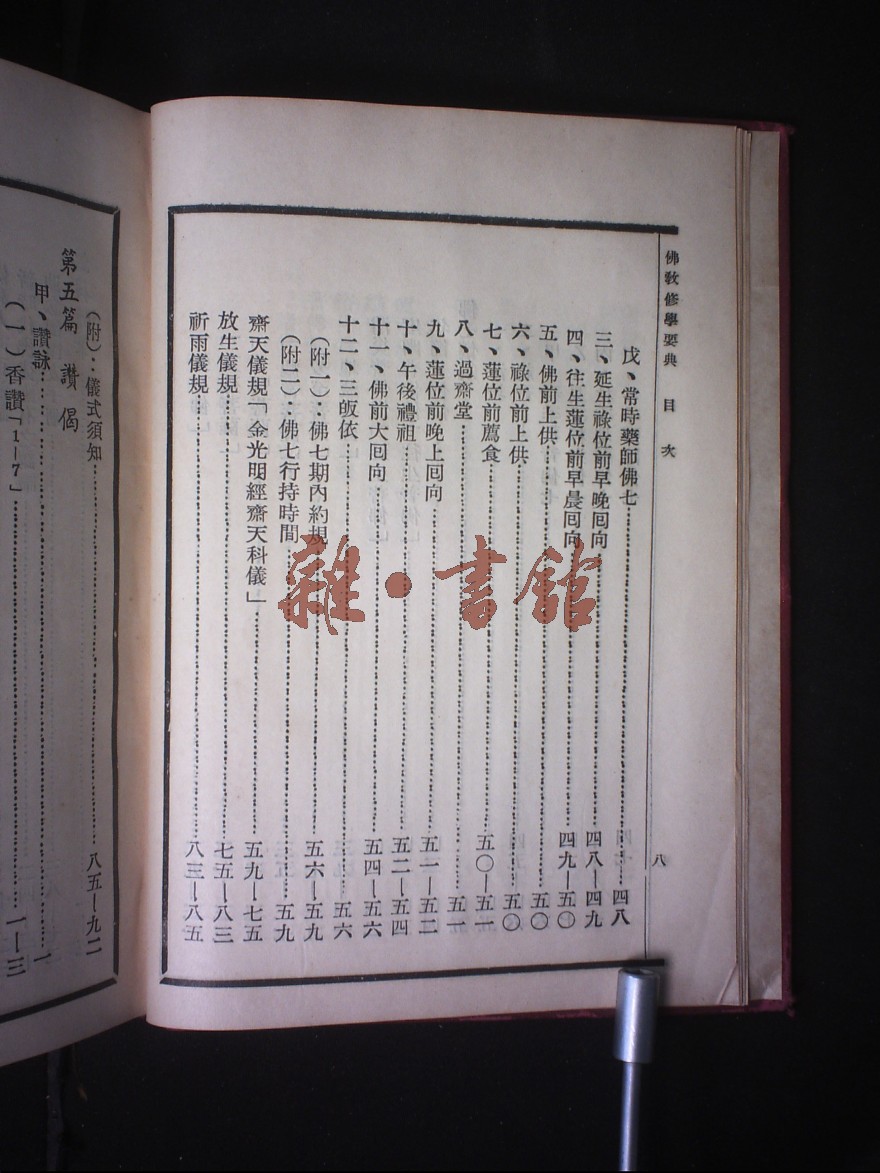 佛教修學要典 目次 八
戊、常時藥師佛七……四八
三、延生祿位前早晚囘向……四八—四九
四、往生蓮位前早晨囘向……四九—五〇
五、佛前上供……五〇
六、祿位前上供……五〇
七、蓮位前薦食……五〇—五一
八、過齋堂……五一
九、蓮位前晚上囘向……五一—五二
十、午後禮祖……五二—五四
十一、佛前大囘向……五四—五六
十二、三皈依……五六
（附一）：佛七期內約規……五六—五九
（附二）：佛七行持時間……五九
齋天儀規「金光明經齋天科儀」……五九—七五
放生儀規……七五—八三
祈雨儀規……八三—八五
（附）：儀式須知……八五—九二
第五篇 讚偈
甲、讚詠……一
（一）香讚「1—7」……一—三
雜·書舘